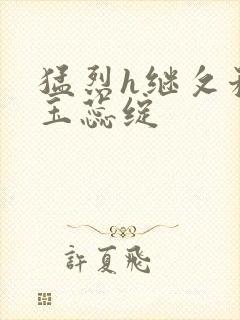 猛烈h继父采
玉蕊绽
許夏飛